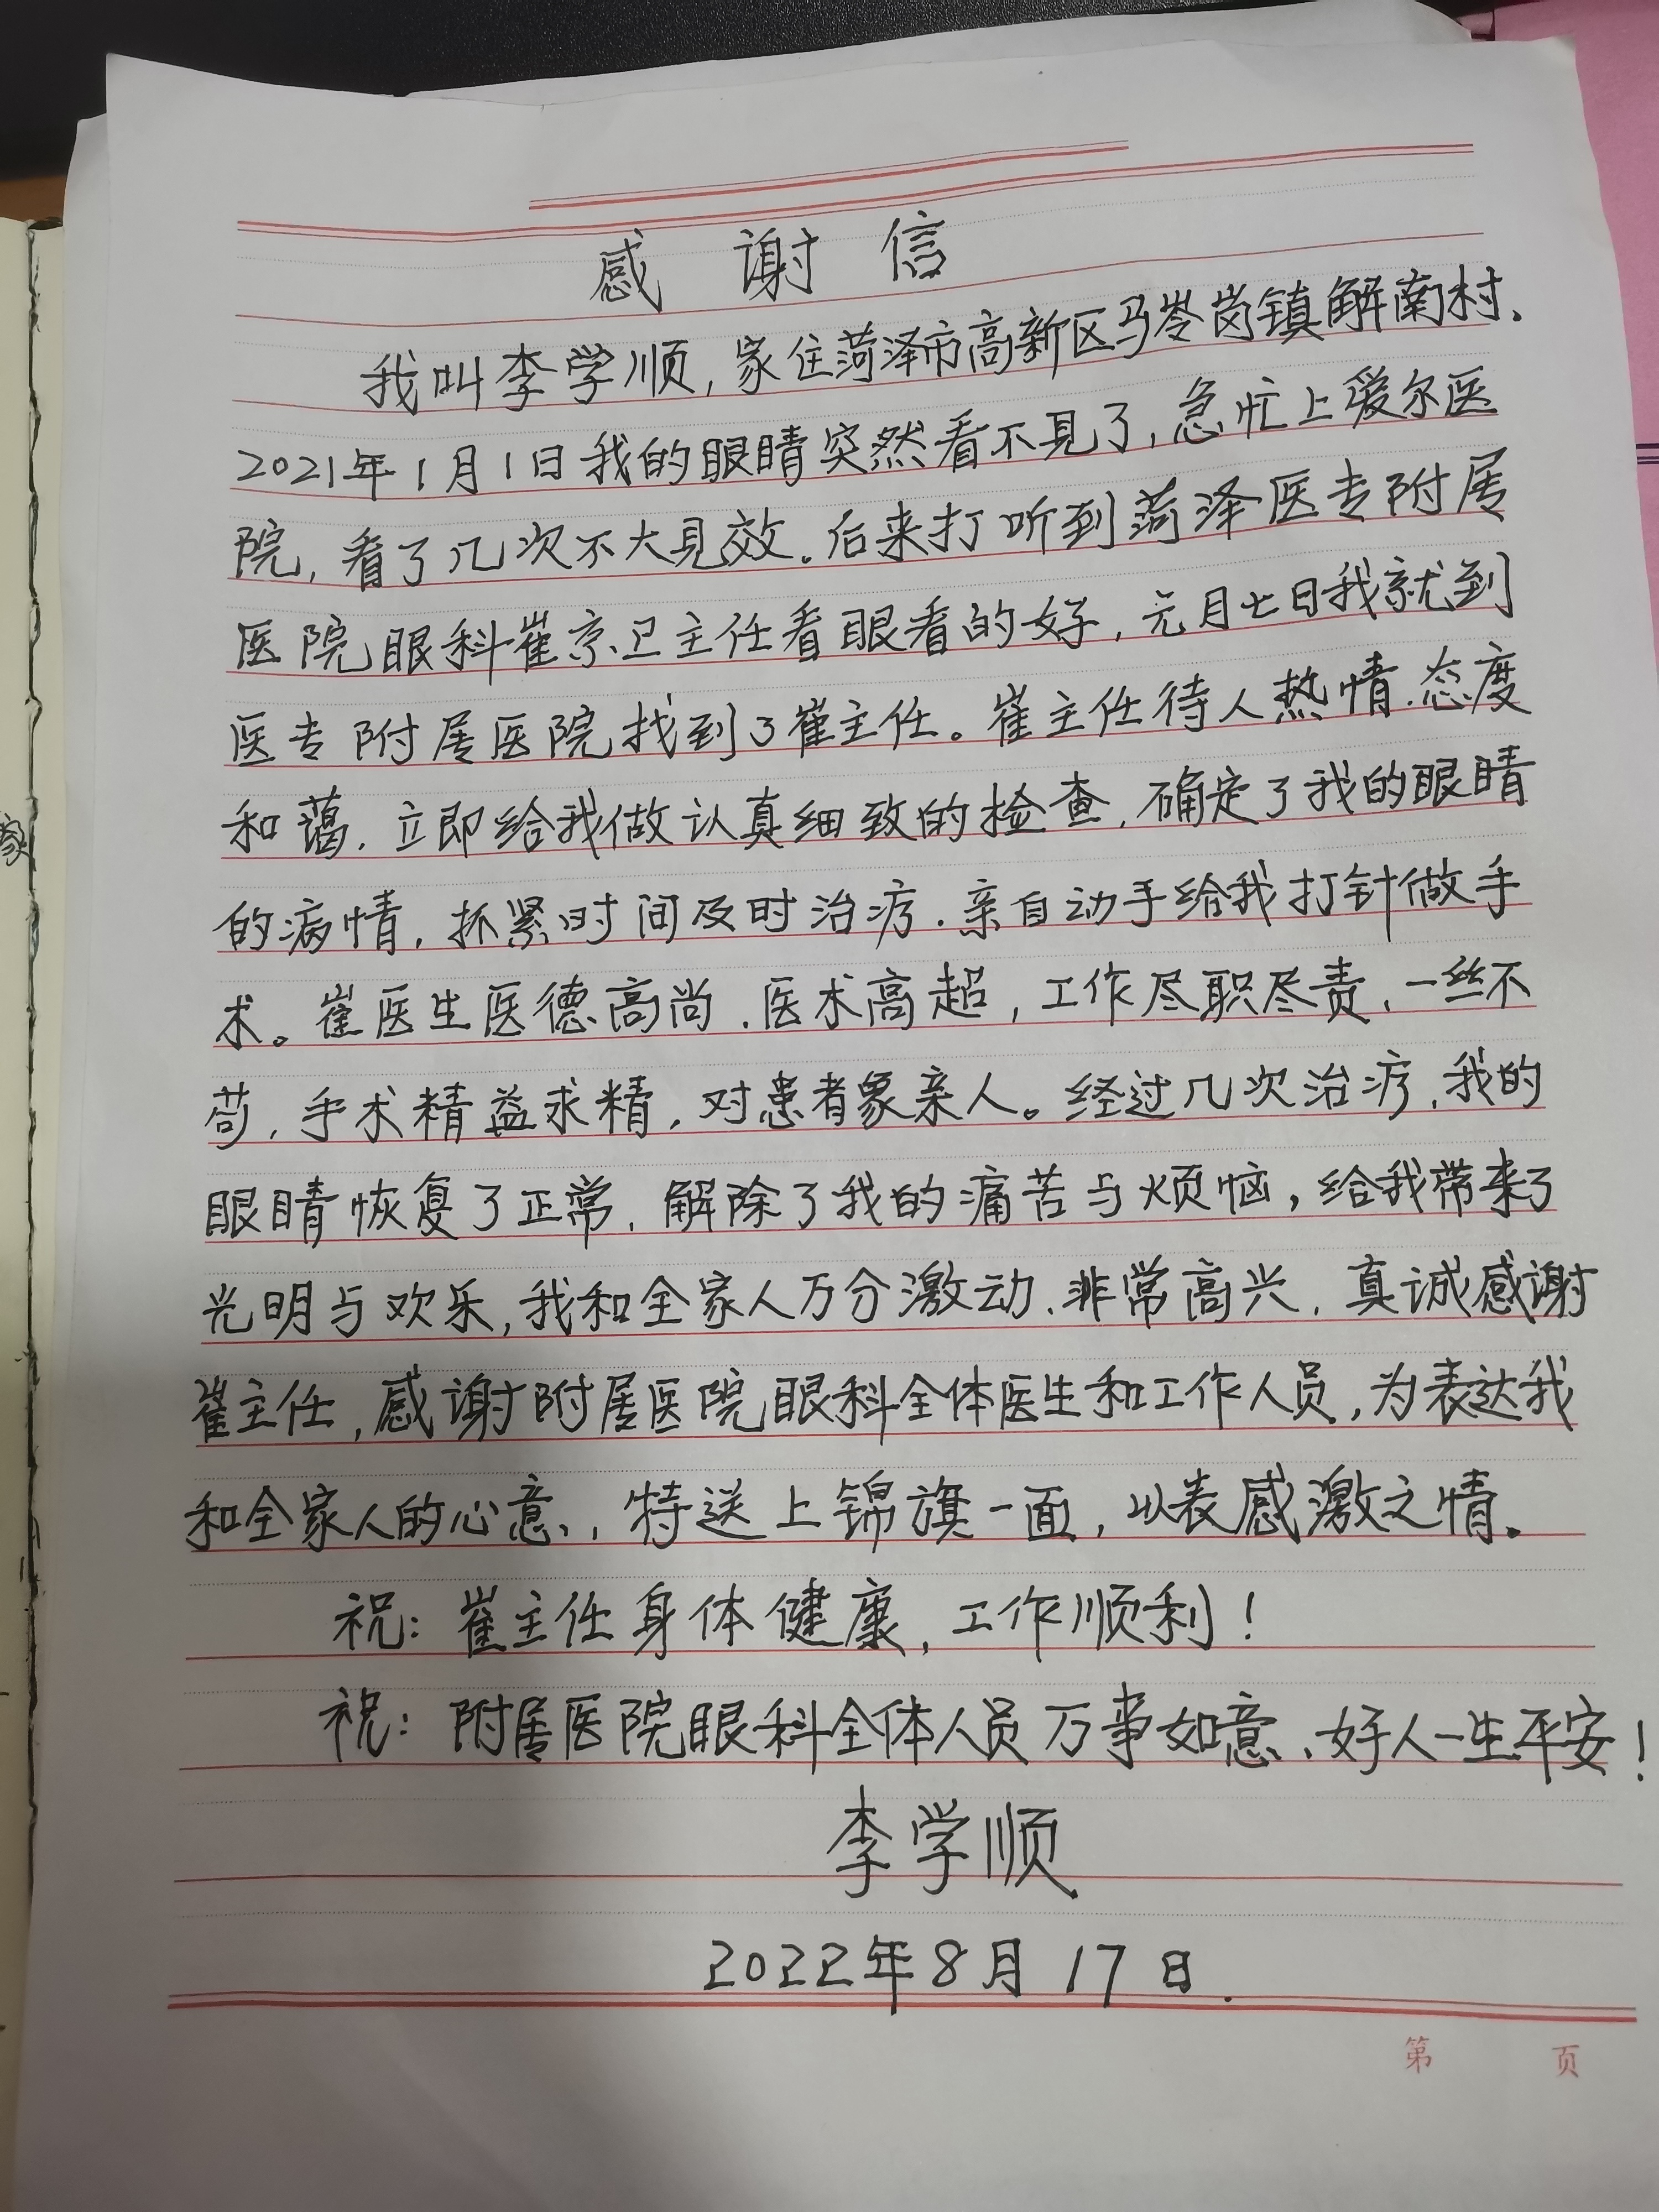 感谢信
我叫李学顺,家住菏泽市高新区马岺岗镇解南村.
2021年1月1日我的眼睛突然看不见了,急忙上爱尔医
院,看了几次不大见效.后来打听到菏泽医专附属
医院眼科崔京卫主任看眼看的好,元月七日我就到
医专附属医院找到了崔主任。崔主任待人热情.态度
和蔼.立即给我做认真细致的检查,确定了我的眼睛
的病情,抓紧时间及时治疗.亲自动手给我打针做手
术。崔医生医德高尚.医术高超,工作尽职尽责、一丝不
苟,手术精益求精,对患者象亲人。经过几次治疗,我的
眼睛恢复了正常,解除了我的痛苦与烦恼,给我带来了
光明与欢乐,我和全家人万分激动、非常高兴,真诚感谢
崔主任,感谢附属医院眼科全体医生和工作人员,为表达我
和全家人的心意,特送上锦旗一面,以表感激之情。
祝:崔主任身体健康,工作顺利!
祝:附属医院眼科全体人员万事如意、好人一生平安!
李学顺
2022年8月17日.
第 页
家